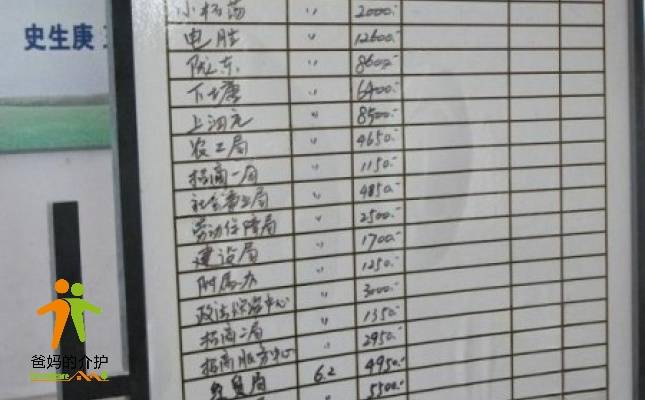 史生庚
小杨荡 〃 2000.-
电胜 〃 12600.-
陇东 〃 8600.-
下塘 〃 6400.-
上河元 〃 8500.-
农工局 〃 4650.-
招商一局 〃 1150.-
社会事业局 〃 4850.-
劳动保障局 〃 2500.-
建设局 〃 1700.-
附属办 〃 1250.-
政法综治中心 〃 3000.-
招商二局 〃 1350.-
招商服务中心 〃 2950.-
经贸局 6.2 4950.-
〃 5500.-
爸妈的介护